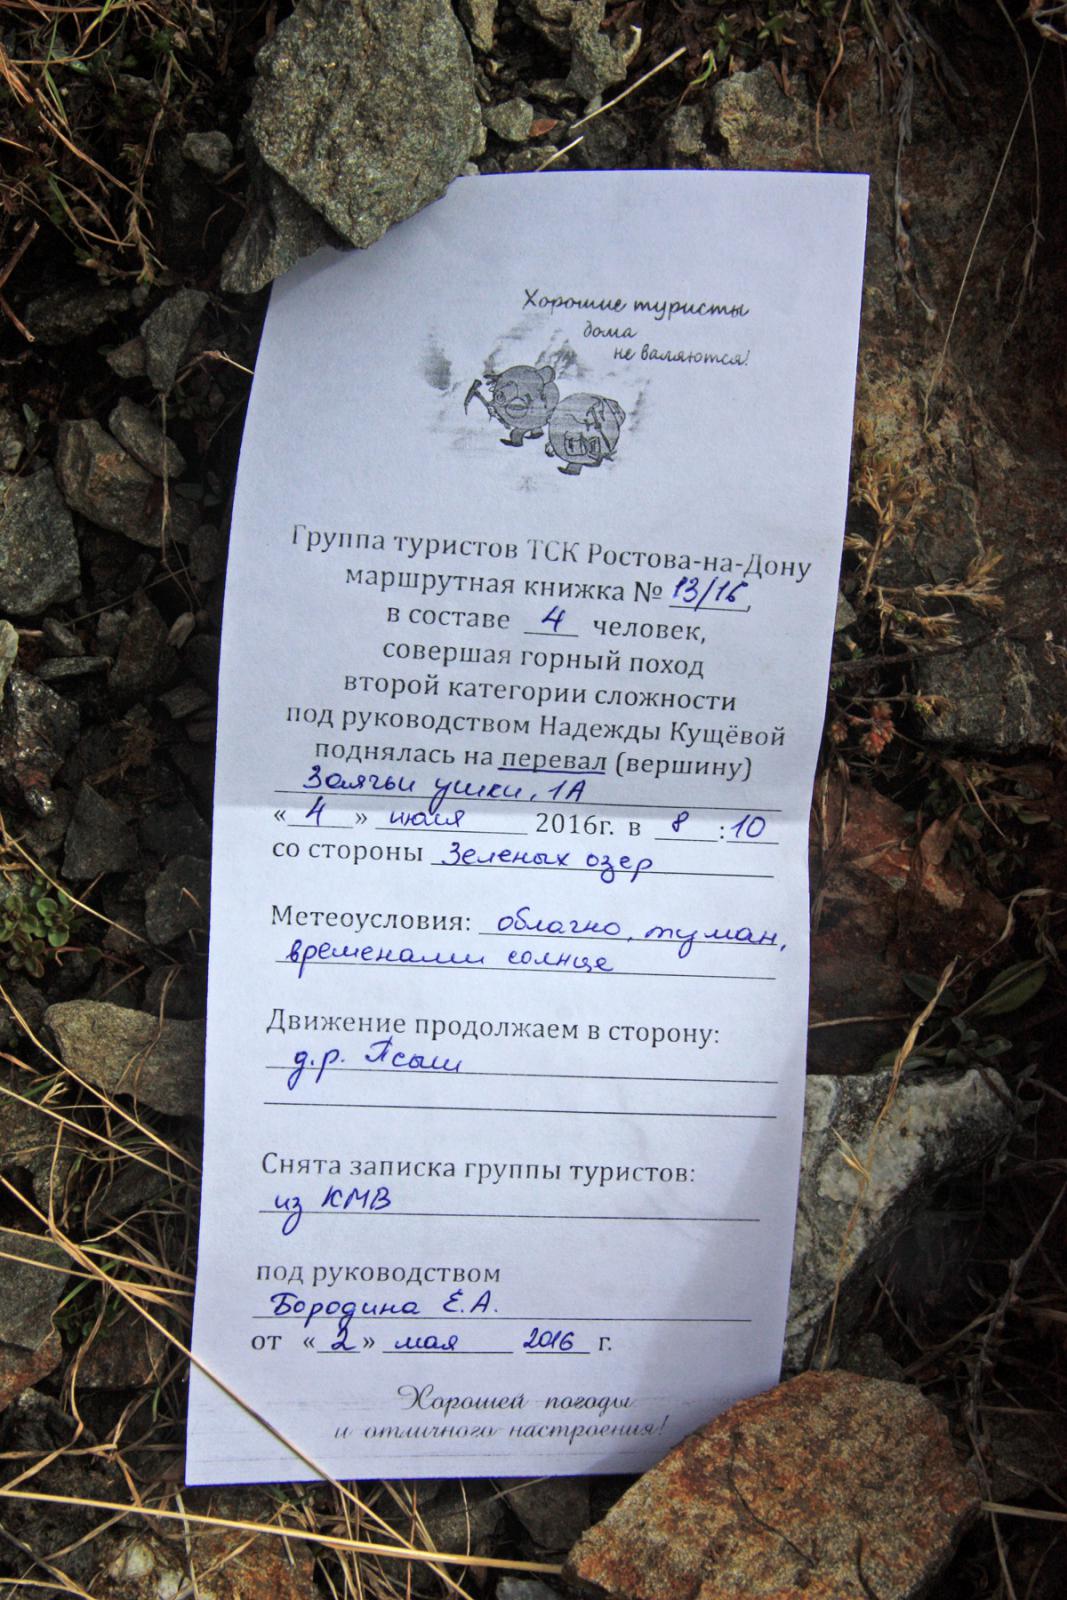 Хорошие туристы
дома
не валяются!
Группа туристов ТСК Ростова-на-Дону
маршрутная книжка № 13/16,
в составе 4 человек,
совершая горный поход
второй категории сложности
под руководством Надежды Кущёвой
поднялась на перевал (вершину)
Заячьи ушки, 1А
« 4 » июля 2016г. в 8 : 10
со стороны Зеленых озер
Метеоусловия: облачно, туман,
временами солнце
Движение продолжаем в сторону:
д.р. Псыш
Снята записка группы туристов:
из КМВ
под руководством
Бородина Е.А.
от « 2 » мая 2016 г.
Хорошей погоды
и отличного настроения!